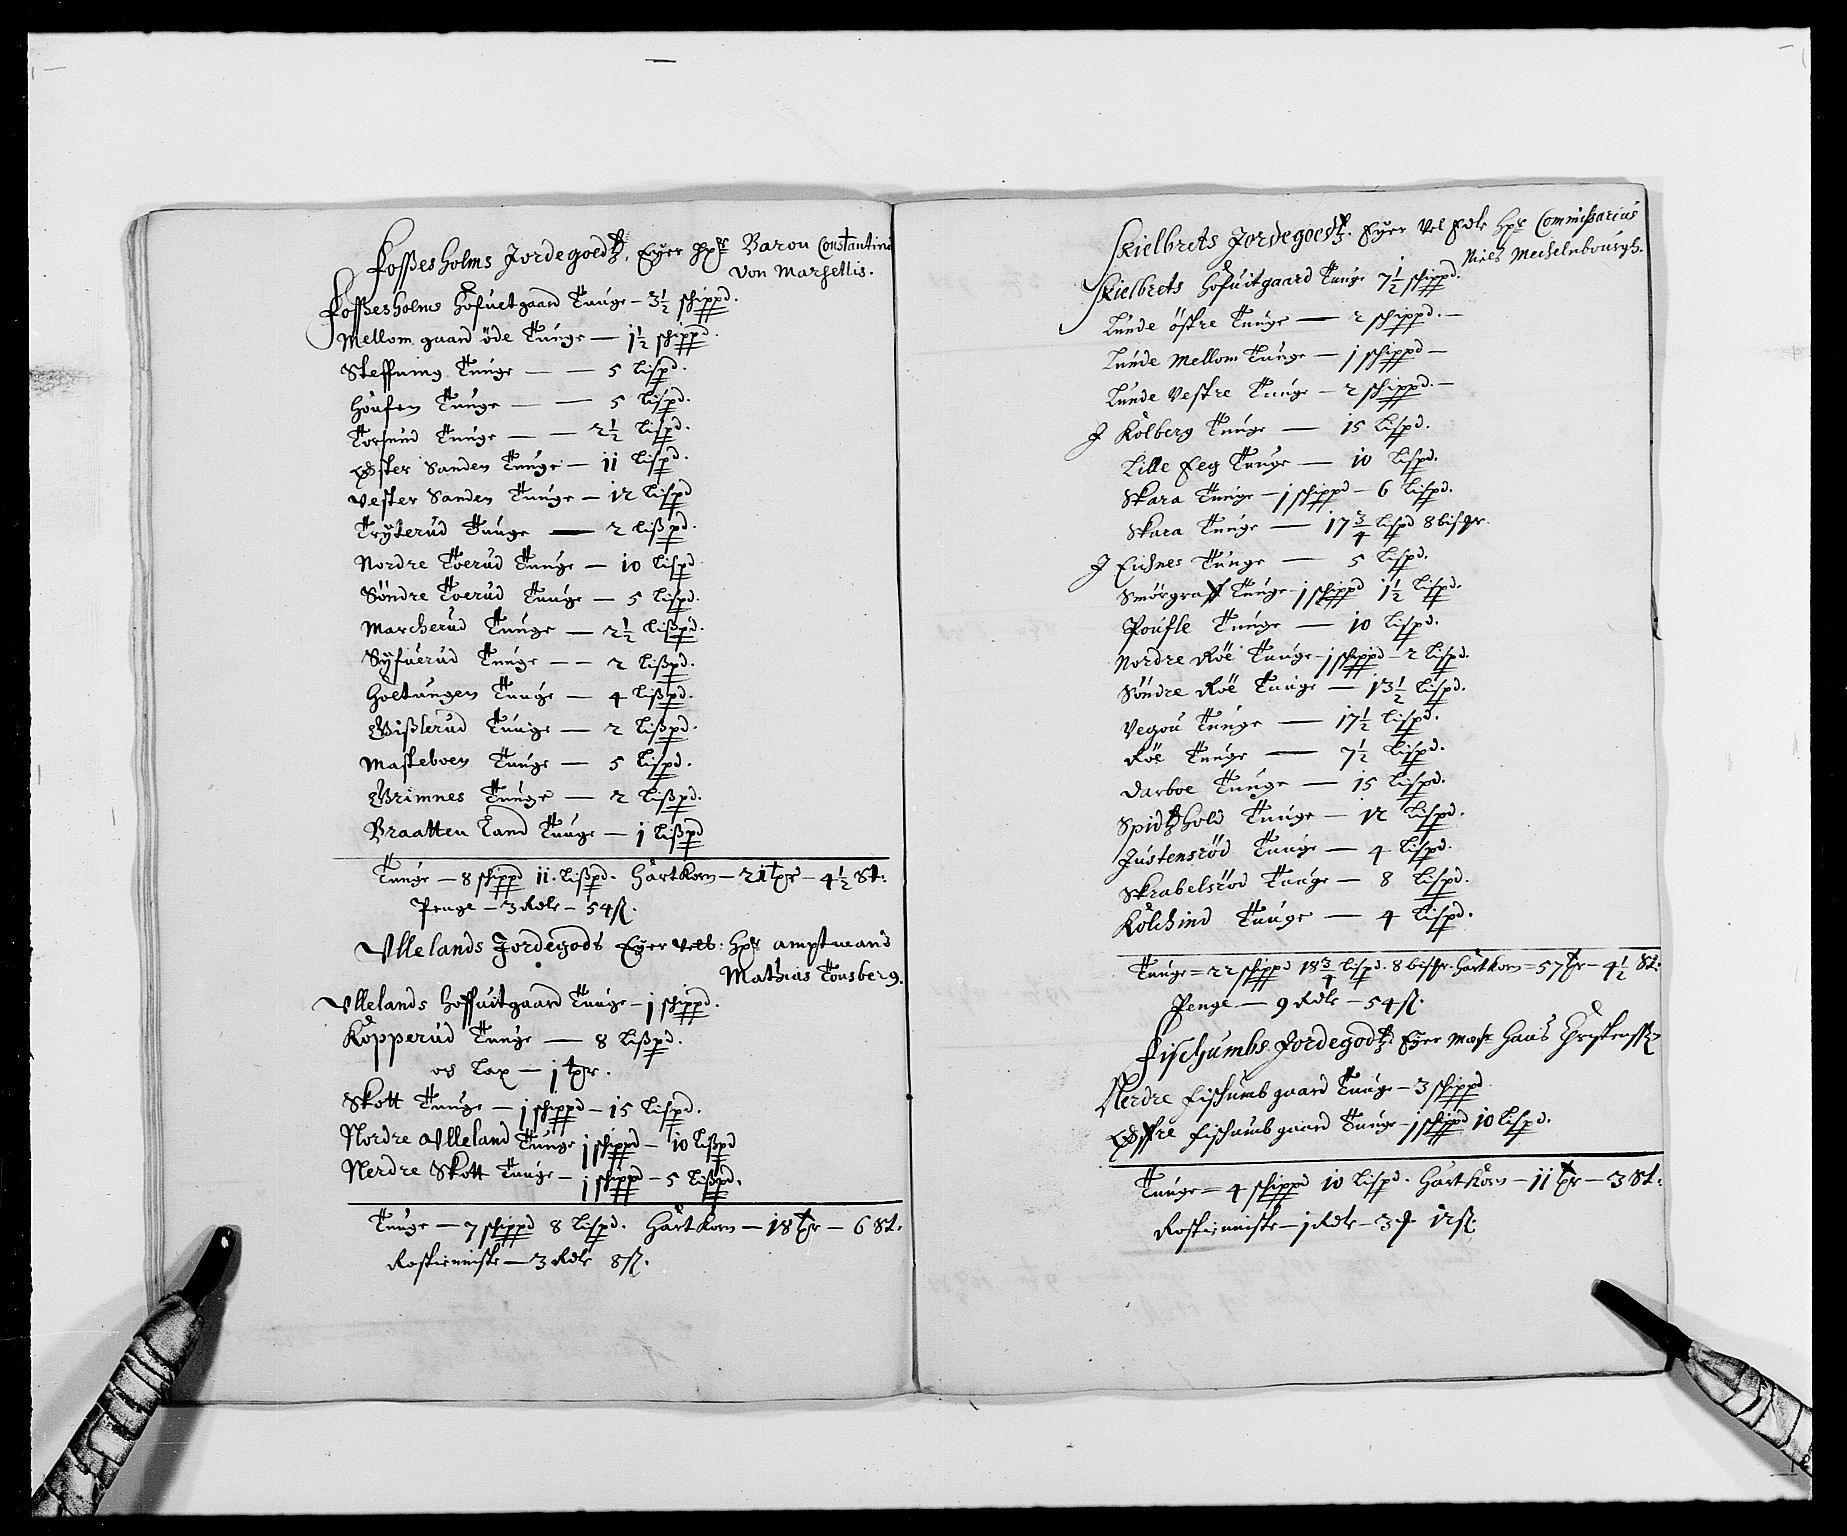 Fossesholms Jordegoedtz, Eyer Hr: Baron Constantino
von Marsellis.
Fossesholms Hofuetgaard Tunge — 3½ schippd.
Mellom gaard öde Tunge — j½ schippd.
Steffning Tunge — — 5 Lispd.
Houfen Tunge — — 5 Lispd.
Torsrud Tunge — — 2½ Lispd.
Øster Sanden Tunge — ii Lispd.
Vester Sanden Tunge — i2 Lispd
Tryterud Tunge — 2 lisspd.
Nordre Toerud Tunge — i0 Lispd
Söndre Toerud Tunge — 5 Lispd.
Marcherud Tunge — 2½ Lisspd.
Syfuerud Tunge — — 2 Lisspd.
Holtungen Tunge — 4 Lisspd.
Gisslerud Tunge — 2 Lisspd.
Masteboen Tunge — 5 Lispd.
Grimnes Tunge — 2 Lisspd.
Braatten Land Tunge — i Lisspd
Tunge — 8 schippd ii. Lisspd. Hartkorn — 2i tr — 4½ St:
Penge — 3 Rdr — 54 s.
Ullelands Jordegods Eyer Velb: Hr amptmand
Mathias Tonsberg.
Ullelands Hoffuitgaard Tunge — j schippd.
Kopperud Tunge — 8 Lisspd.
os Lax — j tr.
Skott Tunge — j schippd — i5 Lispd.
Nordre Ulleland Tunge j schippd — i0 Lisspd
Nerdre Skott Tunge — j schippd — 5 Lisspd.
Tunge — 7 schippd 8 Lispd. Hartkorn — i8 tr — 6 St:
Rostienniste — 3 Rdr 8 s.
Skielbrets Jordegoedtz. Eyer Vel Edle Hr Commissarius
Niels Mechelnbourgh.
Skielbrets Hofuitgaard Tunge 7½ schippd.
Lunde östre Tunge — 2 schippd. —
Lunde Mellom Tunge — j schippd —
Lunde Vestre Tunge — 2 schippd. —
J Kolberg Tunge — i5 Lispd.
Lille Eeg Tunge — i0 Lispd.
Skara Tunge — j schippd — 6 Lispd.
Skara Tunge — i7¾ Lispd 8 bismr.
J Eichnes Tunge — 5 Lispd.
Smörgraff Tunge — j schippd i½ Lispd.
Poufle Tunge — i0 Lispd.
Nordre Röe Tunge — j schippd — 2 Lispd.
Söndre Röe Tunge — i3½ Lispd.
Vegou Tunge — i7½ Lispd.
Röe Tunge — 7½ Lispd.
Darboe Tunge — i5 Lispd.
Spidtzhold Tunge — i2 Lispd.
Justensröd Tunge — 4 Lispd.
Skrabelsröd Tunge — 8 Lispd.
Kolchind Tunge — 4 Lispd.
Tunge = 22 schippd i8¾ Lispd. 8 bismr. Hartkorn = 57 tr — 4½ St:
Penge — 9 Rdr — 54 s.
Fischumbs Jordegodtz Eyer Mosr Hans
Nerdre Fischumb gaard Tunge — 3 schippd
Østre Fischumb gaard Tunge — j schippd i0 Lispd.
Tunge = 4 schippd i0 Lispd. Hartkorn — ii tr — 3 St:
Rostienniste — j Rdr — 3 i2 s.